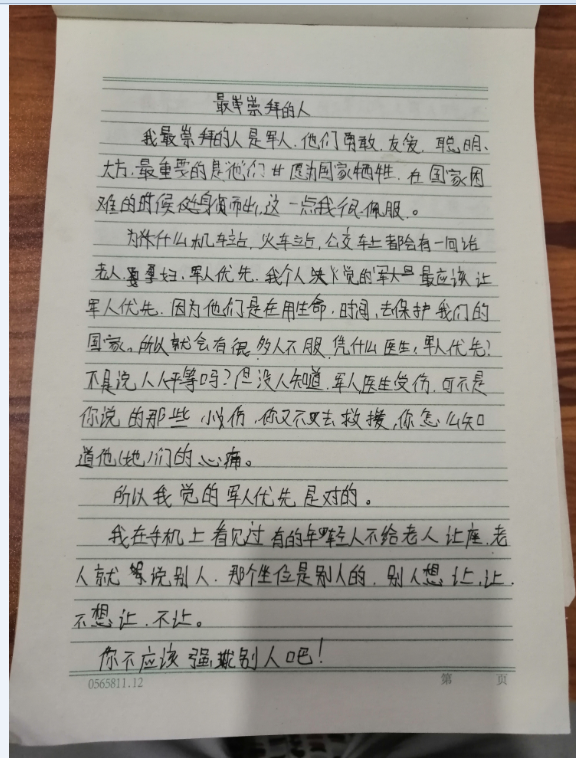 最崇拜的人
我最崇拜的人是军人.他们勇敢.友爱.聪明、
大方.最重要的是他们甘愿为国家牺牲.在国家困
难的时候挺身而出,这一点我很佩服。
为什么机车站.火车站,公交车上都会有一句话
老人.孕妇.军人优先.我个人觉的军人最应该让
军人优先.因为他们是在用生命.时间,去保护我们的
国家。所以就会有很多人不服.凭什么医生,军人优先?
不是说人人平等吗?但没人知道.军人医生受伤.可不是
你说的那些小伤.你又不去救援,你怎么知
道他(她)们的心痛。
所以我觉的军人优先是对的。
我在手机上看见过有的年轻人不给老人让座.老
人就说别人.那个坐位是别人的.别人想让,让.
不想让.不让。
你不应该强求别人吧!
0565811.12
第 页